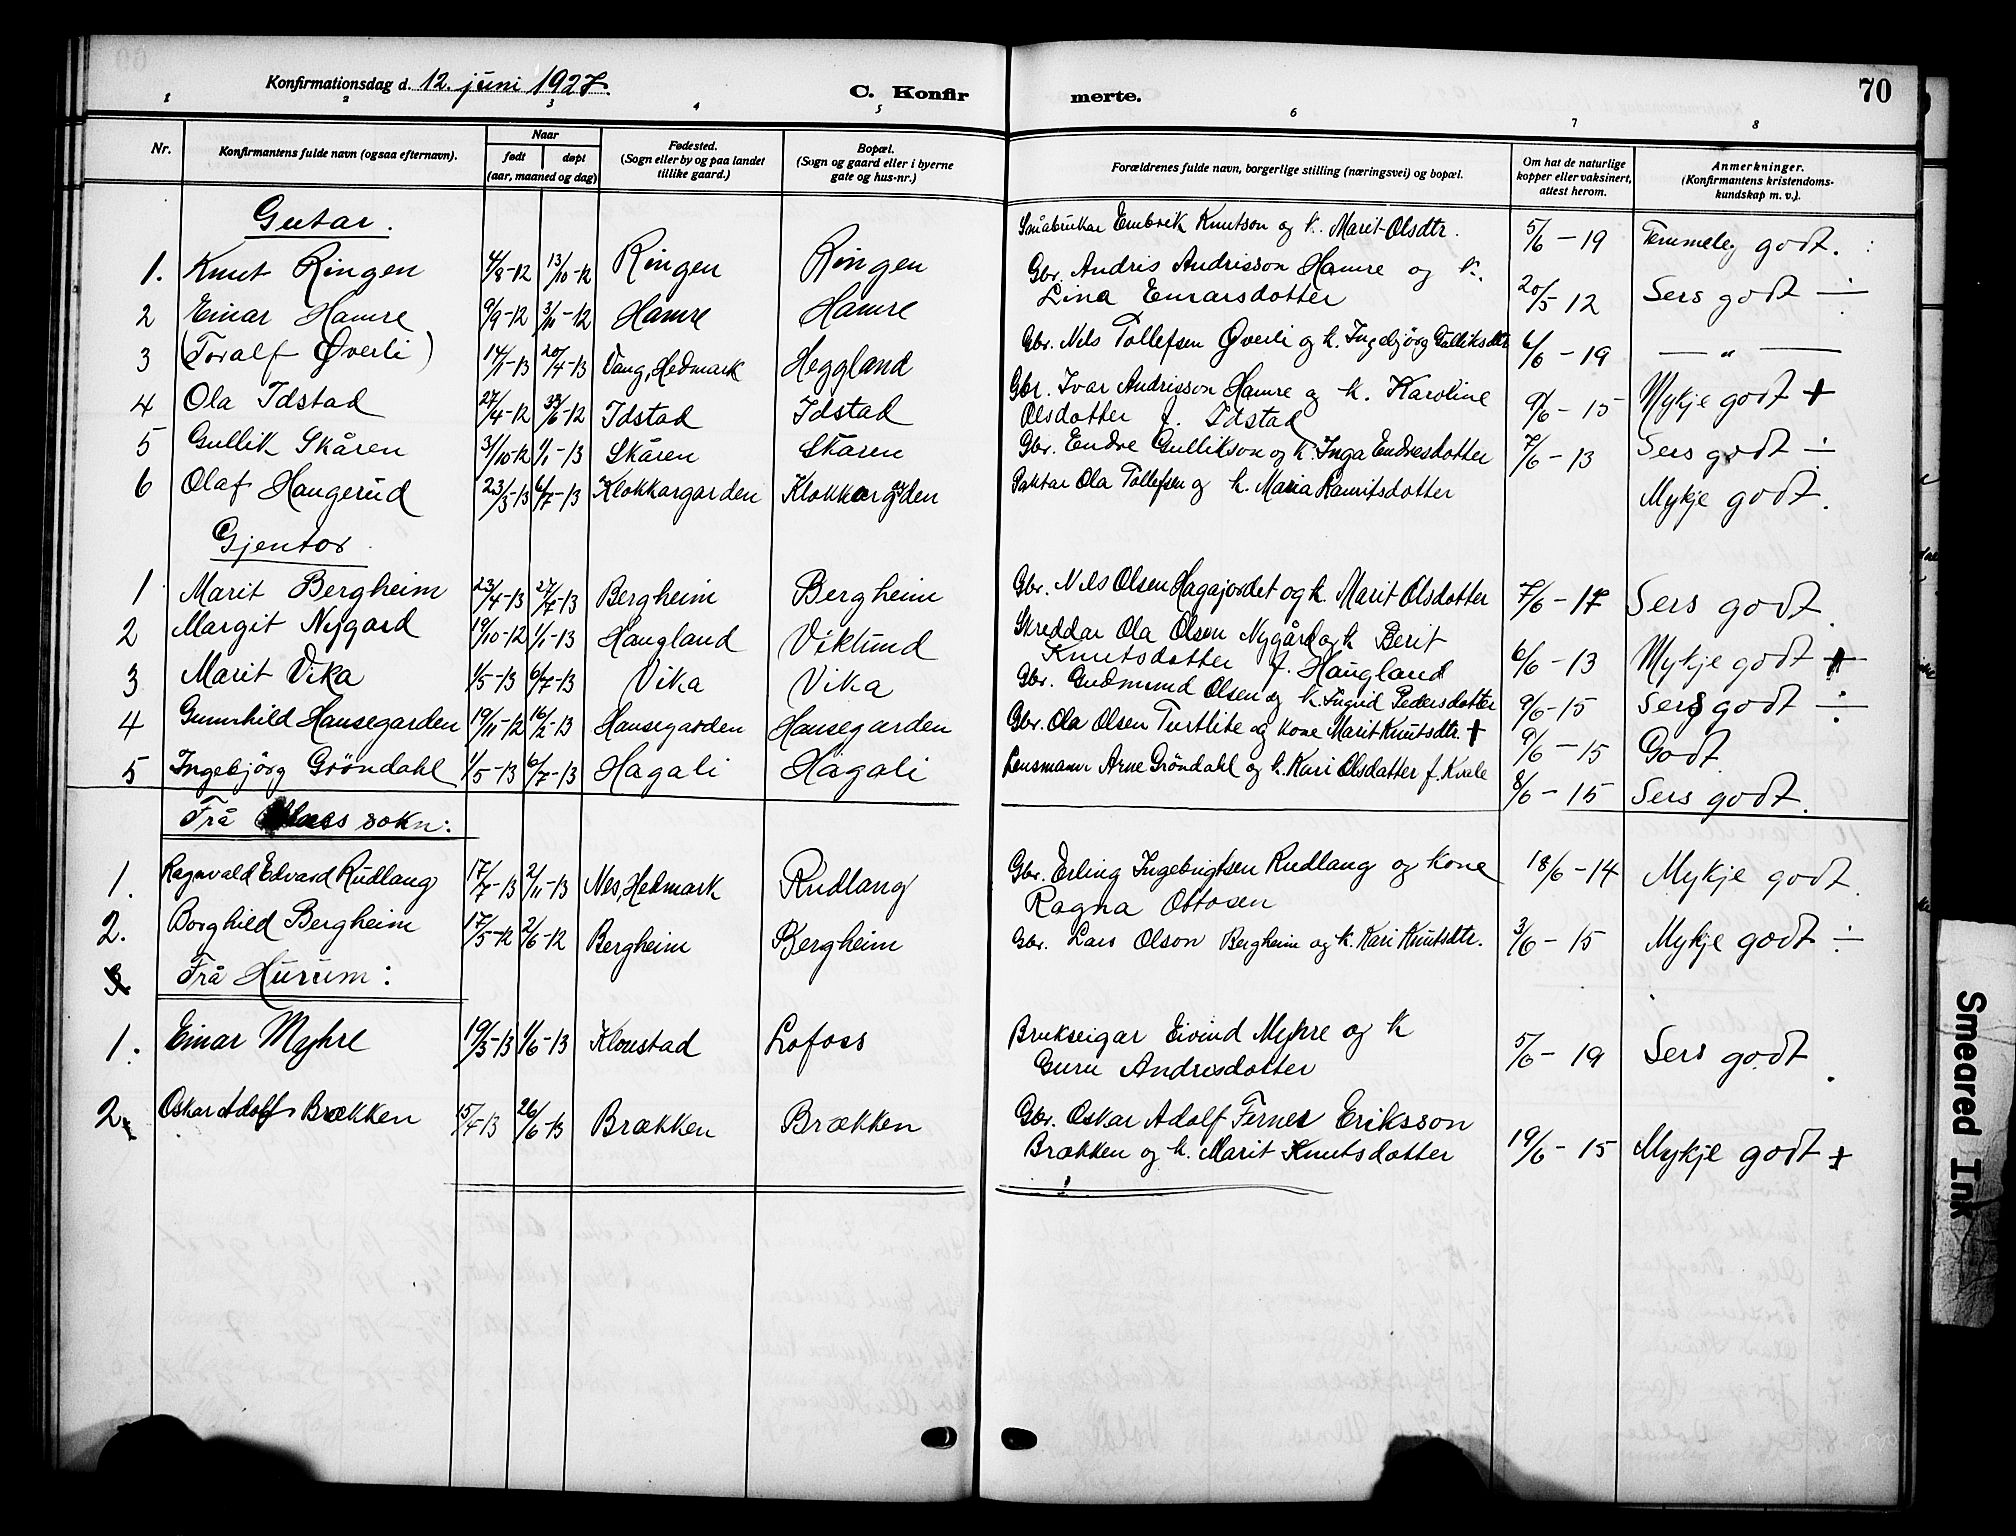 70
Konfirmationsdag d. 12. juni 1927.
C. Konfir
merte.
1 2 3 4 5 6 7 8
Nr.
Konfirmantens fulde navn (ogsaa efternavn).
Naar
født døpt
(aar, maaned og dag)
Fødested.
(Sogn eller by og paa landet
tillike gaard.)
Bopæl.
(Sogn og gaard eller i byerne
gate og hus-nr.)
Forældrenes fulde navn, borgerlige stilling (næringsvei) og bopæl.
Om hat de naturlige
kopper eller vaksinert,
attest herom.
Anmerkninger.
(Konfirmantens kristendoms-
kundskap m. v.).
Gutar.
1. Knut Ringen 4/8-12 13/10-12 Ringen Ringen Småbrukar Embrik Knutson og k. Marit Olsdtr. 5/6-19 Temmeleg godt.
2 Einar Hamre 9/9-12 3/11-12 Hamre Hamre Gbr. Andris Andrisson Hamre og k.
Lina Einarsdotter 20/5 12 Sers godt ÷
3 (Toralf Øverli) 14/1-13 20/4-13 Vang, Hedmark Heggland Gbr. Nels Tollefsen Øverli og k. Ingebjørg Gulliksdtr 6/6-19 — " —
4 Ola Idstad 27/4-12 Idstad Idstad Gbr. Ivar Andrisson Hamre og k. Karoline
Olsdotter f. Idstad 9/6-15 Mykje godt +
5 Gullik Skåren 3/10-12 1/1-13 Skåren Skåren Gbr. Endre Gullikson og k. Inga Endresdotter 7/6-13 Sers godt ÷
6 Olaf Haugerud 23/3-13 6/7-13 Klokkargarden Klokkargarden Paktar Ola Tollefsen og k. Maria Lauritsdotter Mykje godt.
Gjentor.
1 Marit Bergheim 23/4-13 27/7-13 Bergheim Bergheim Gbr. Nels Olsen Hagajordet og k. Marit Olsdotter 7/6-17 Sers godt.
2 Margit Nygard 19/10-12 1/1-13 Haugland Viklund Skreddar Ola Olsen Nygård og k Berit
Knutsdotter f. Haugland 6/6-13 Mykje godt +
3 Marit Vika 1/5-13 6/7-13 Vika Vika Gbr. Gudmund Olsen og k. Ingrid Pedersdotter 9/6-15 Sers godt ÷
4 Gunnhild Hansegarden 19/11-12 16/2-13 Hansegarden Hansegarden Gbr. Ola Olsen Turtlite og kone Marit Knutsdtr. + 9/6-15 Godt.
5 Ingebjörg Gröndahl 1/5-13 6/7-13 Hagali Hagali Lensmann Arne Gröndahl og k. Kari Olsdatter f. Kvele 8/6-15 Sers godt.
Frå sokn:
1. Ragnvald Edvard Rudlang 17/7-13 2/11-13 Nes, Hedmark Rudlang Gbr. Erling Ingebrigtsen Rudlang og kone
Ragna Ottosen 18/6-14 Mykje godt.
2. Borghild Bergheim 17/5-12 2/6-12 Bergheim Bergheim Gbr. Lars Olson Bergheim og k. Kari Knutsdtr. 3/6-15 Mykje godt ÷
3 Frå Hurum:
1. Einar Myhre 19/3-13 1/6-13 Klonstad Lofoss Brukseigar Eivind Myhre og k
Guru Andrisdotter 5/6-19 Sers godt.
2. Oskar Adolf Brækken 15/4-13 26/6-13 Brækken Brækken Gbr. Oskar Adolf Ferner Eriksson
Brækken og k. Marit Knutsdotter 19/6-15 Mykje godt +
Smeared Ink